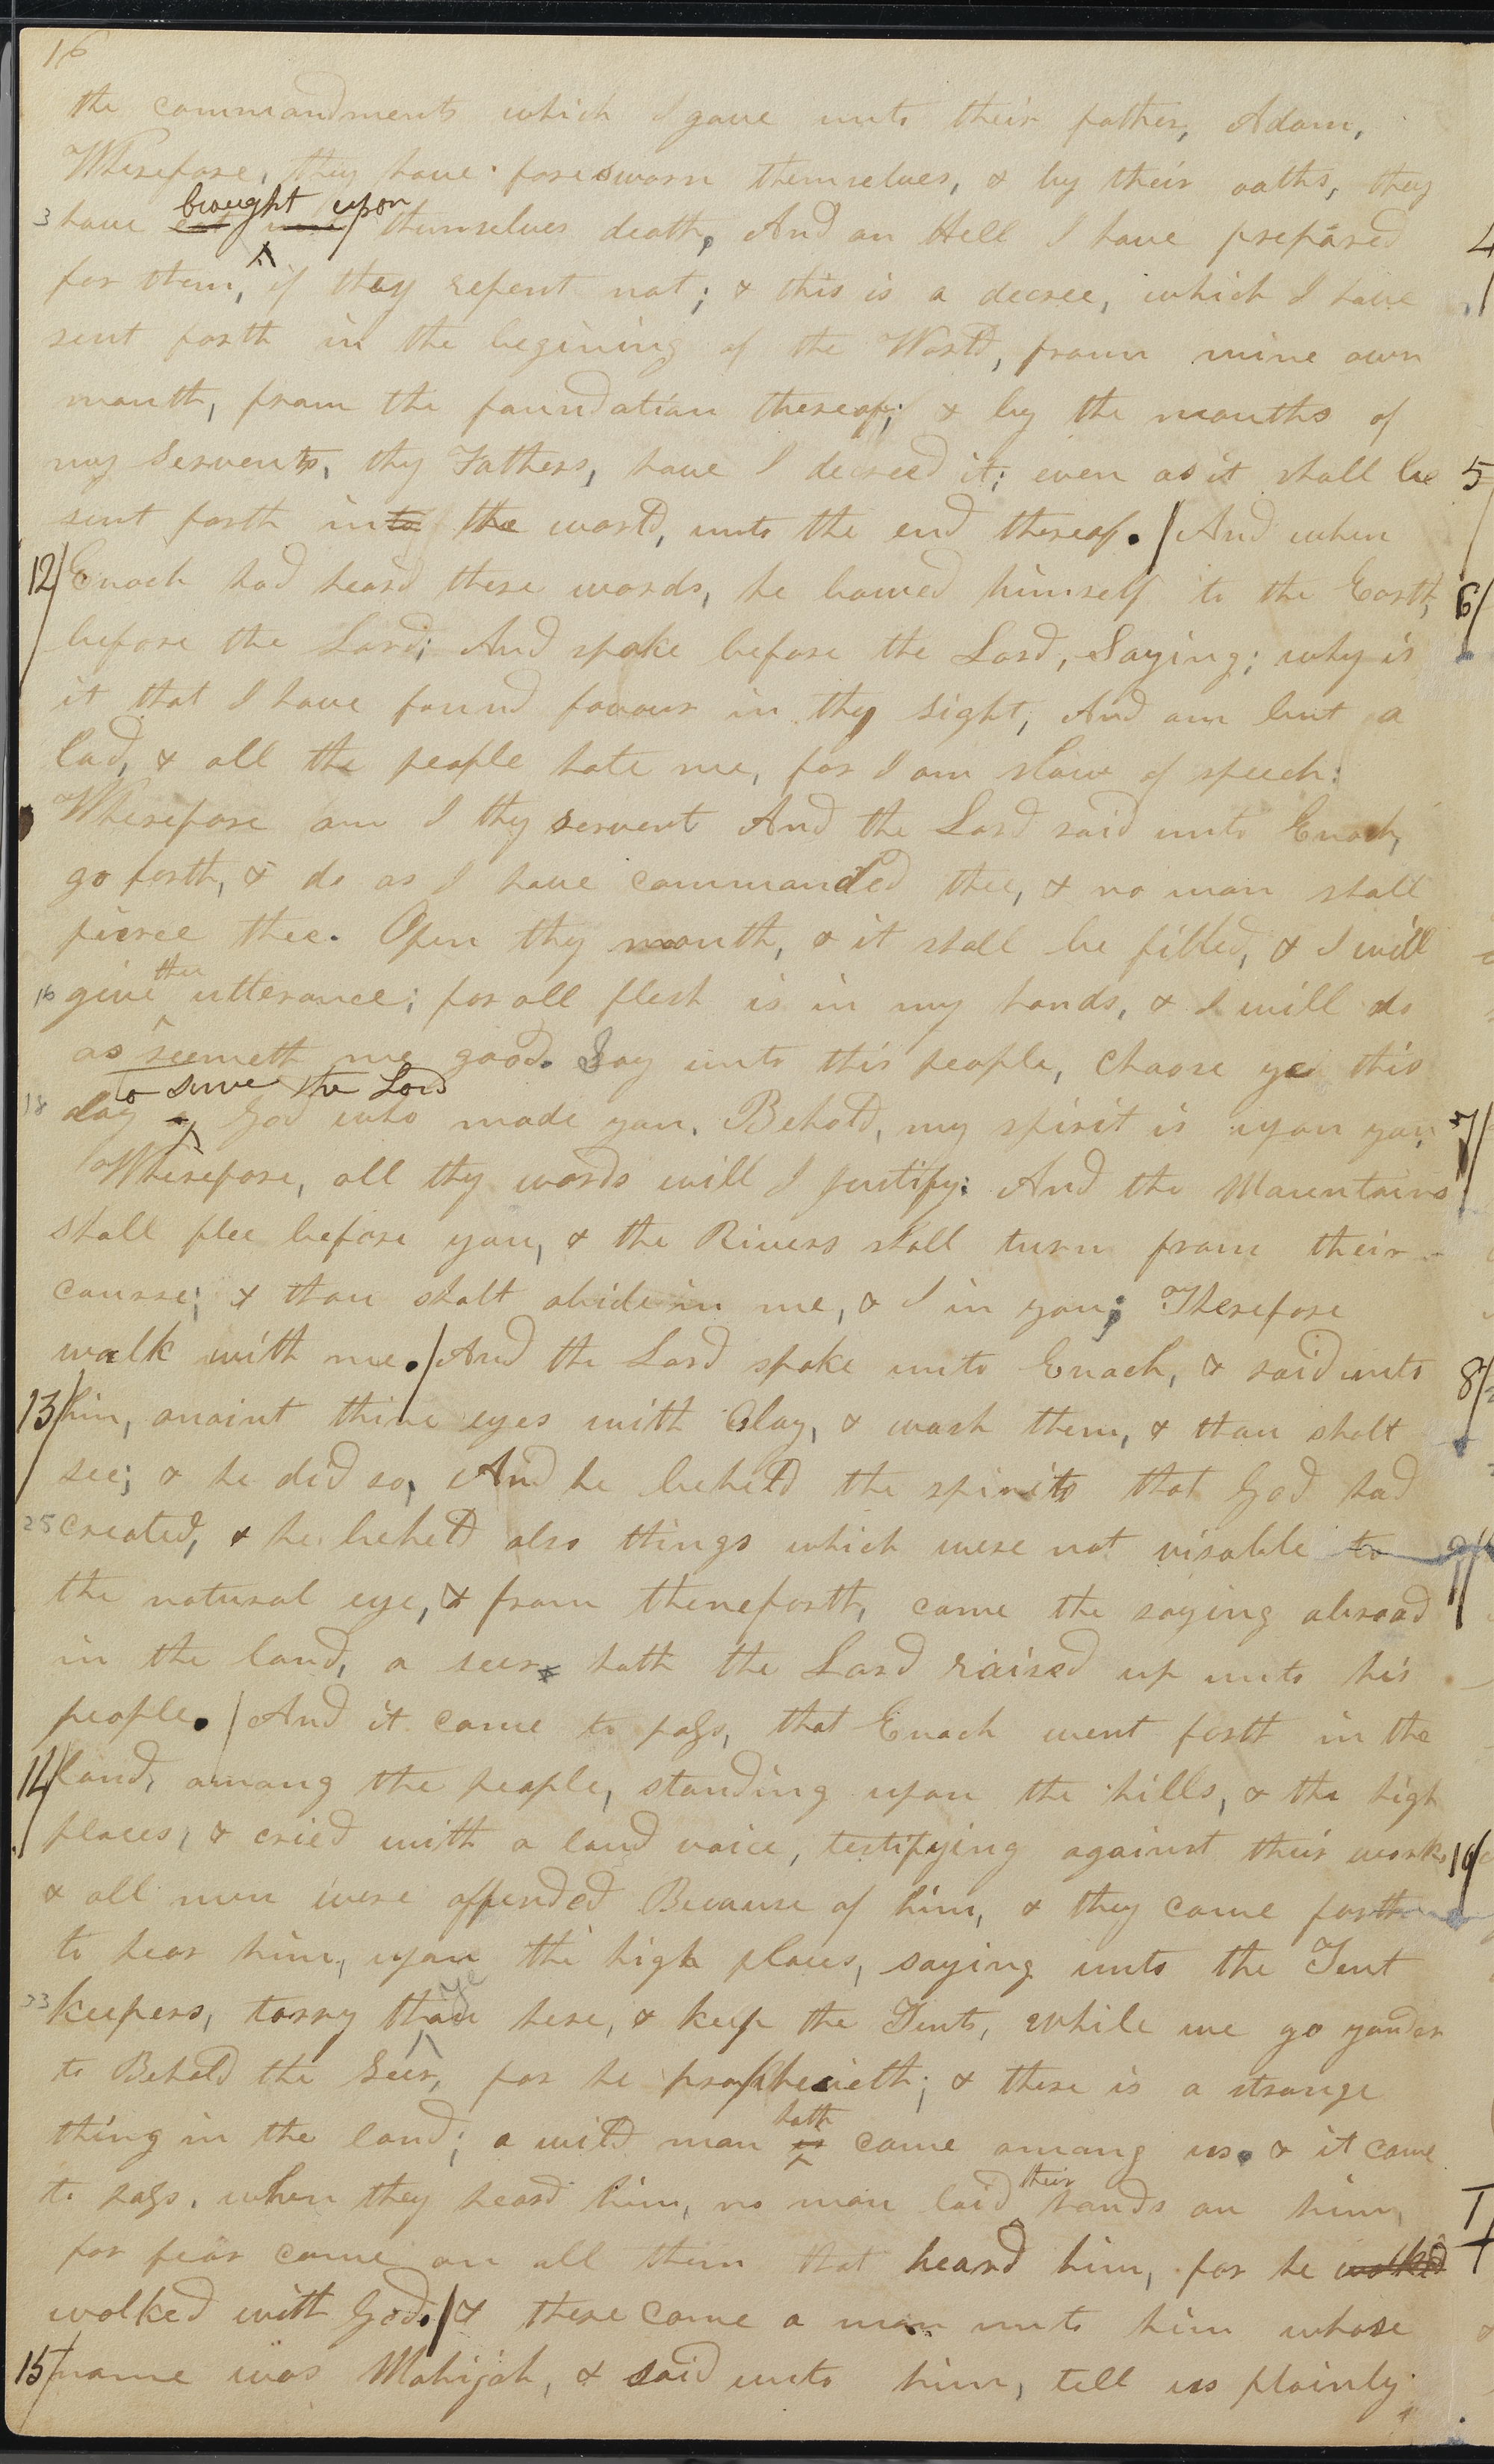 16
the commandments which I gave unto their father, Adam,
Wherefore, they have foresworn themselves, & by their oaths, they
brought upon
3 have eat unto themselves death, And an Hell I have prepared 4
for them, if they repent not; & this is a decree, which I have
sent forth in the begining of the World, from mine own
mouth, from the foundation thereof; & by the mouths of
my Servents, thy Fathers, have I decreed it; even as it shall be 5
sent forth into the world, unto the end thereof. / And when
12/ Enoch had heard these words, he bowed himself to the Earth, 6/
before the Lord; And spake before the Lord, Saying; why is
it that I have found favour in thy sight, And am but a
lad, & all the people hate me, for I am slow of speech:
Wherefore am I thy servent And the Lord said unto Enoch,
go forth, & do as I have commanded thee, & no man shall
pierce thee. Open thy mouth, & it shall be filled, & I will
thee
16 give utterance; for all flesh is in my hands, & I will do
as seemeth me good. Say unto this people, Choose ye this
to serve the Lord
18 day a God who made you. Behold, my spirit is upon you, 7/
Wherefore, all thy words will I justify: And the Mountains
shall flee before you, & the Rivers shall turn from their
course; & thou shalt abide in me, & I in you; Therefore
walk with me. / And the Lord spake unto Enoch, & said unto 8/
13/ him, anoint thine eyes with Clay, & wash them, & thou shalt
see; & he did so, And he beheld the spirits that God had
25 created, & he beheld also things which were not visable to 9/
the natural eye, & from thenceforth, came the saying abroad
in the land, a seer hath the Lord raised up unto his
people. / And it came to pass, that Enoch went forth in the
14/ land, among the people, standing upon the hills, & the high
places, & cried with a loud voice, testifying against their works 10/
& all men were offended Because of him, & they came forth
to hear him, upon the high places, saying unto the Tent
ye
33 keepers, tarry thou here, & keep the Tents, while we go yonder
to Behold the Seer, for he prophecieth; & there is a strange
hath
thing in the land; a wild man is come among us. & it came
their
to pass, when they heard him, no man laid hands on him,
for fear came on all them that heard him, for he walked
walked with God. / & there came a man unto him whose
15/ name was Mahijah, & said unto him, tell us plainly